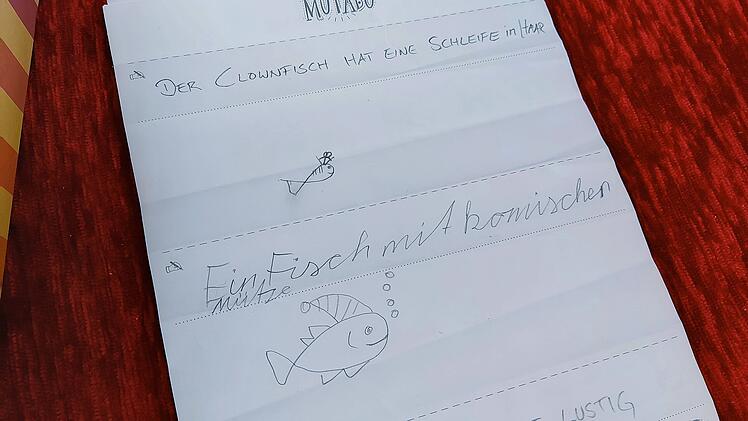 MUTABO
DER CLOWNFISCH HAT EINE SCHLEIFE in HAAR
Ein Fisch mit komischen
mütze
LUSTIG